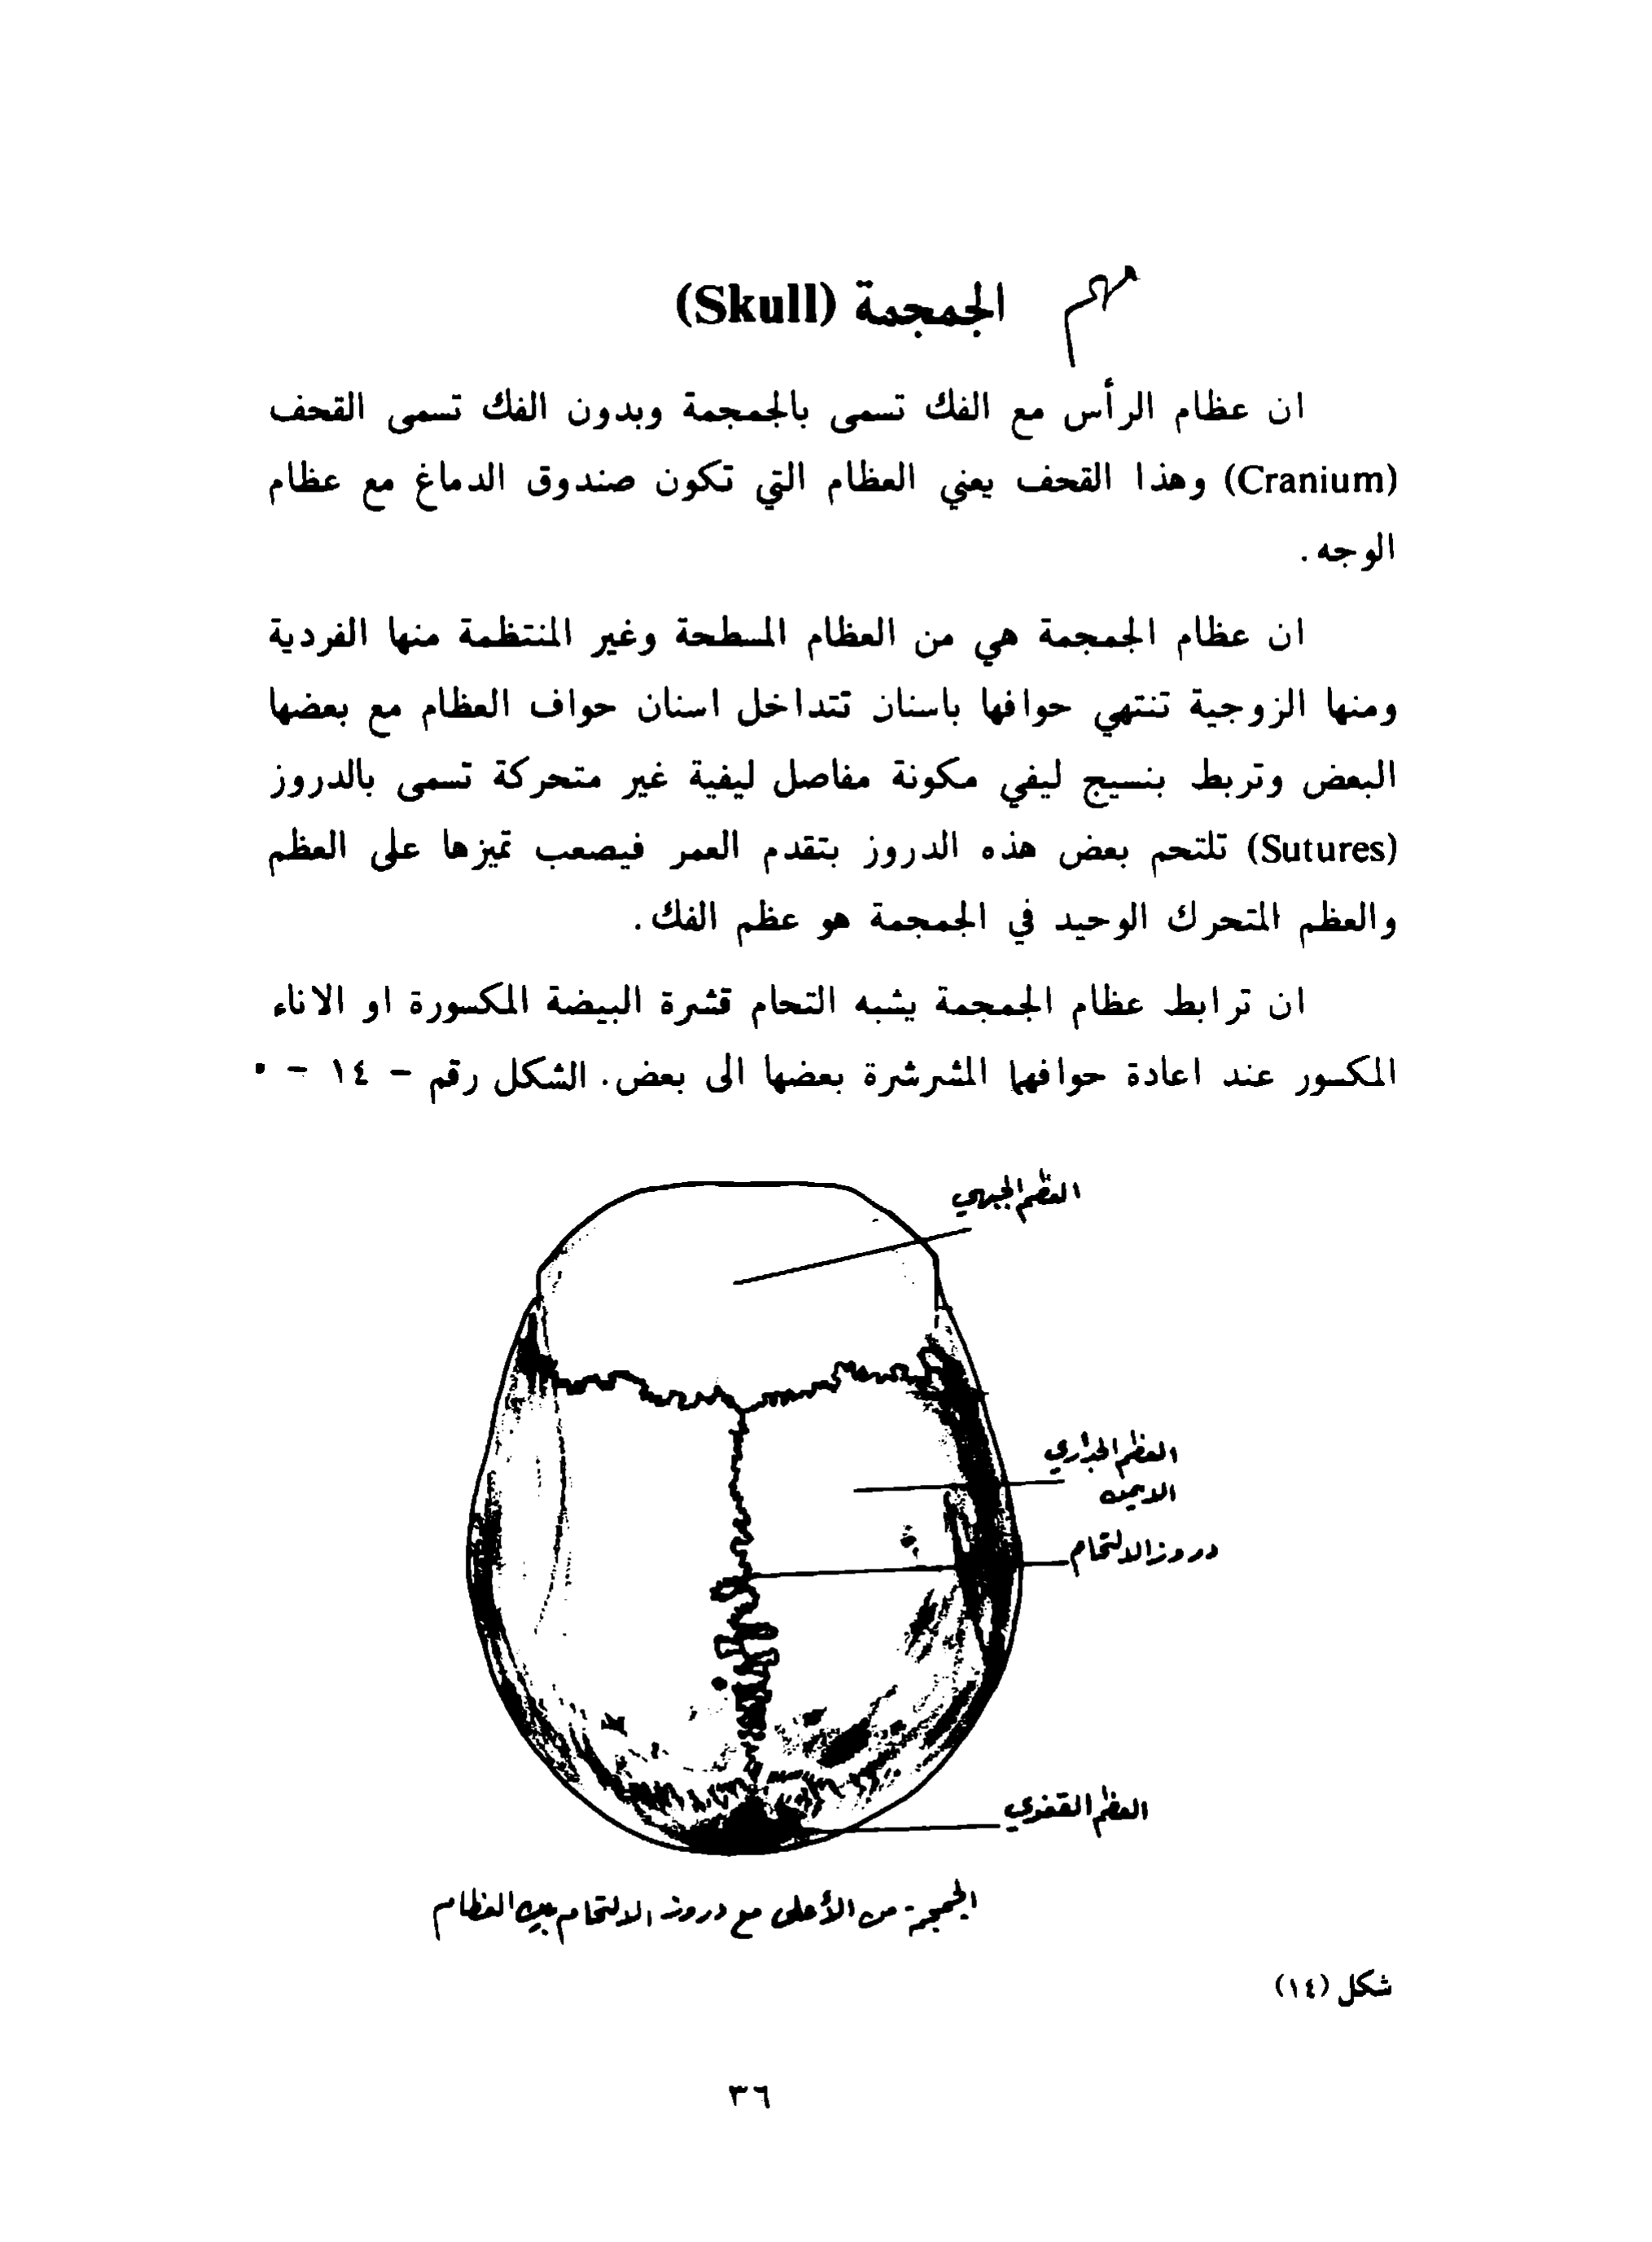 مهم
الجمجمة (Skull)
ان عظام الرأس مع الفك تسمى بالجمجمة وبدون الفك تسمى القحف
(Cranium) وهذا القحف يعني العظام التي تكون صندوق الدماغ مع عظام
الوجه .
ان عظام الجمجمة هي من العظام المسطحة وغير المنتظمة منها الفردية
ومنها الزوجية تنتهي حوافها باسنان تتداخل اسنان حواف العظام مع بعضها
البعض وتربط بنسيج ليفي مكونة مفاصل ليفية غير متحركة تسمى بالدروز
(Sutures) تلتحم بعض هذه الدروز بتقدم العمر فيصعب تميزها على العظم
والعظم المتحرك الوحيد في الجمجمة هو عظم الفك .
ان ترابط عظام الجمجمة يشبه التحام قشرة البيضة المكسورة او الاناء
المكسور عند اعادة حوافهما المشرشرة بعضها الى بعض . الشكل رقم – ١٤ – .
العظم الجبهي
العظم الجداري
الايمن
دروز الالتحام
العظم القفوي
الجمجمة من الأعلى مع دروز الالتحام بين العظام
شكل (١٤)
٣٦